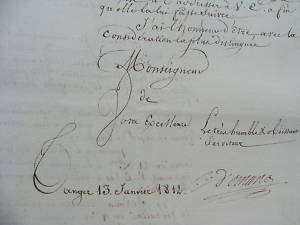 à l'addresser à V. E. afin
qu'elle la lui fasse suivre.
J'ai l'honneur d'être, avec la
considération la plus distinguée
Monseigneur
de
Votre Excellence Le très humble & obéissant
Serviteur
Tanger 13 Janvier 1812.